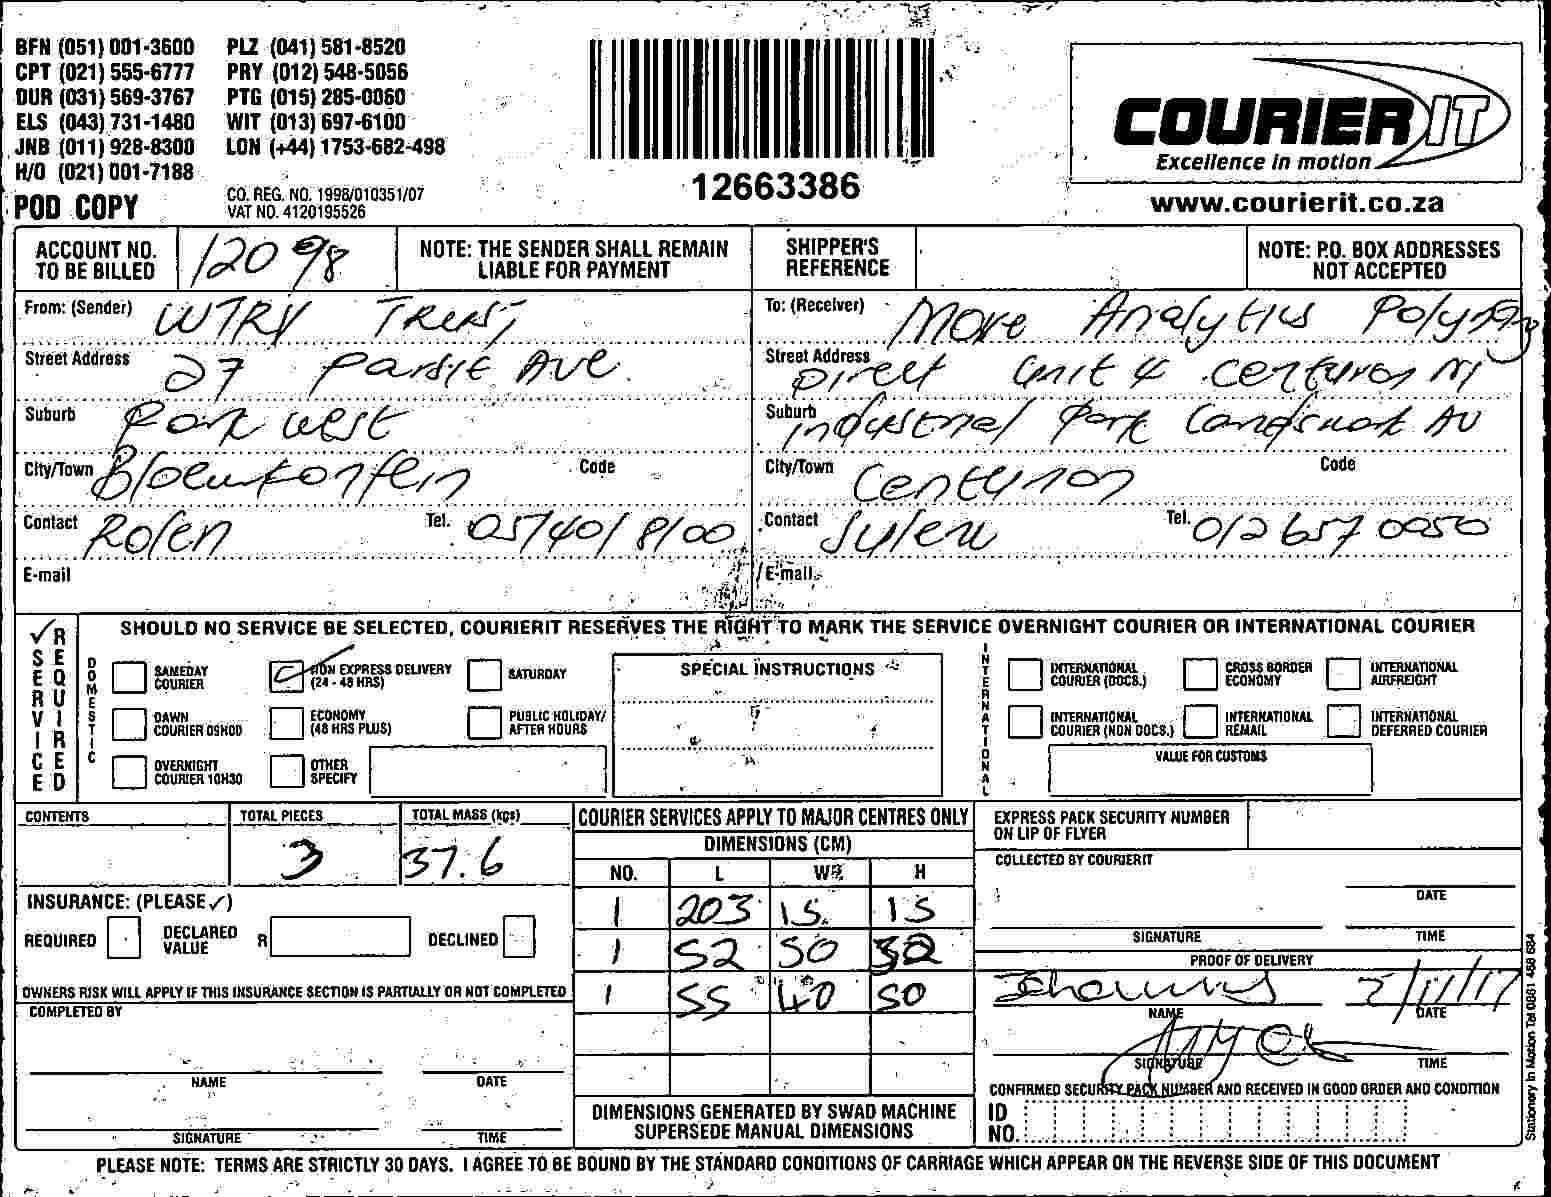 BFN (051) 001-3600 PLZ (041) 581-8520
CPT (021) 555-6777 PRY (012) 548-5056
DUR (031) 569-3767 PTG (015) 285-0060
ELS (043) 731-1480 WIT (013) 697-6100
JNB (011) 928-8300 LON (+44) 1753-682-498
H/O (021) 001-7188
POD COPY
CO. REG. NO. 1998/010351/07
VAT NO. 4120195526
12663386
COURIER IT
Excellence in motion
www.courierit.co.za
ACCOUNT NO. TO BE BILLED 12098
NOTE: THE SENDER SHALL REMAIN LIABLE FOR PAYMENT
SHIPPER'S REFERENCE
NOTE: P.O. BOX ADDRESSES NOT ACCEPTED
From: (Sender) WTRV Trust
Street Address 27 Parsie Ave
Suburb Park West
City/Town Bloemfontein Code
Contact Rolen Tel. 0514018100
E-mail
To: (Receiver) More Analytics
Street Address Direct Unit 4 Centurion
Suburb Industrial Park Landsmark Av
City/Town Centurion Code
Contact Tel. 012 657 0050
E-mail
SHOULD NO SERVICE BE SELECTED, COURIERIT RESERVES THE RIGHT TO MARK THE SERVICE OVERNIGHT COURIER OR INTERNATIONAL COURIER
✓ SERVICE REQUIRED
DOMESTIC
SAMEDAY COURIER
NON EXPRESS DELIVERY (24 - 48 HRS)
SATURDAY
DAWN COURIER 09H00
ECONOMY (48 HRS PLUS)
PUBLIC HOLIDAY/ AFTER HOURS
OVERNIGHT COURIER 10H30
OTHER SPECIFY
SPECIAL INSTRUCTIONS
INTERNATIONAL
INTERNATIONAL COURIER (DOCS.)
CROSS BORDER ECONOMY
INTERNATIONAL AIRFREIGHT
INTERNATIONAL COURIER (NON DOCS.)
INTERNATIONAL REMAIL
INTERNATIONAL DEFERRED COURIER
VALUE FOR CUSTOMS
CONTENTS
TOTAL PIECES 3
TOTAL MASS (kgs) 37.6
INSURANCE: (PLEASE ✓)
REQUIRED DECLARED VALUE R DECLINED
OWNERS RISK WILL APPLY IF THIS INSURANCE SECTION IS PARTIALLY OR NOT COMPLETED
COMPLETED BY
NAME DATE
SIGNATURE TIME
COURIER SERVICES APPLY TO MAJOR CENTRES ONLY
DIMENSIONS (CM)
NO. L W H
1 203 15 15
1 52 50 32
1 55 40 50
DIMENSIONS GENERATED BY SWAD MACHINE SUPERSEDE MANUAL DIMENSIONS
EXPRESS PACK SECURITY NUMBER ON LIP OF FLYER
COLLECTED BY COURIERIT
DATE
SIGNATURE TIME
PROOF OF DELIVERY
2/11/17
NAME DATE
SIGNATURE TIME
CONFIRMED SECURITY PACK NUMBER AND RECEIVED IN GOOD ORDER AND CONDITION
ID NO.
Stationery In Motion Tel 0861 468 684
PLEASE NOTE: TERMS ARE STRICTLY 30 DAYS. I AGREE TO BE BOUND BY THE STANDARD CONDITIONS OF CARRIAGE WHICH APPEAR ON THE REVERSE SIDE OF THIS DOCUMENT